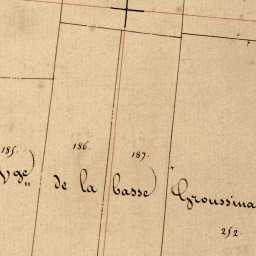 185. 186. 187.
de la basse) Groussina
252.